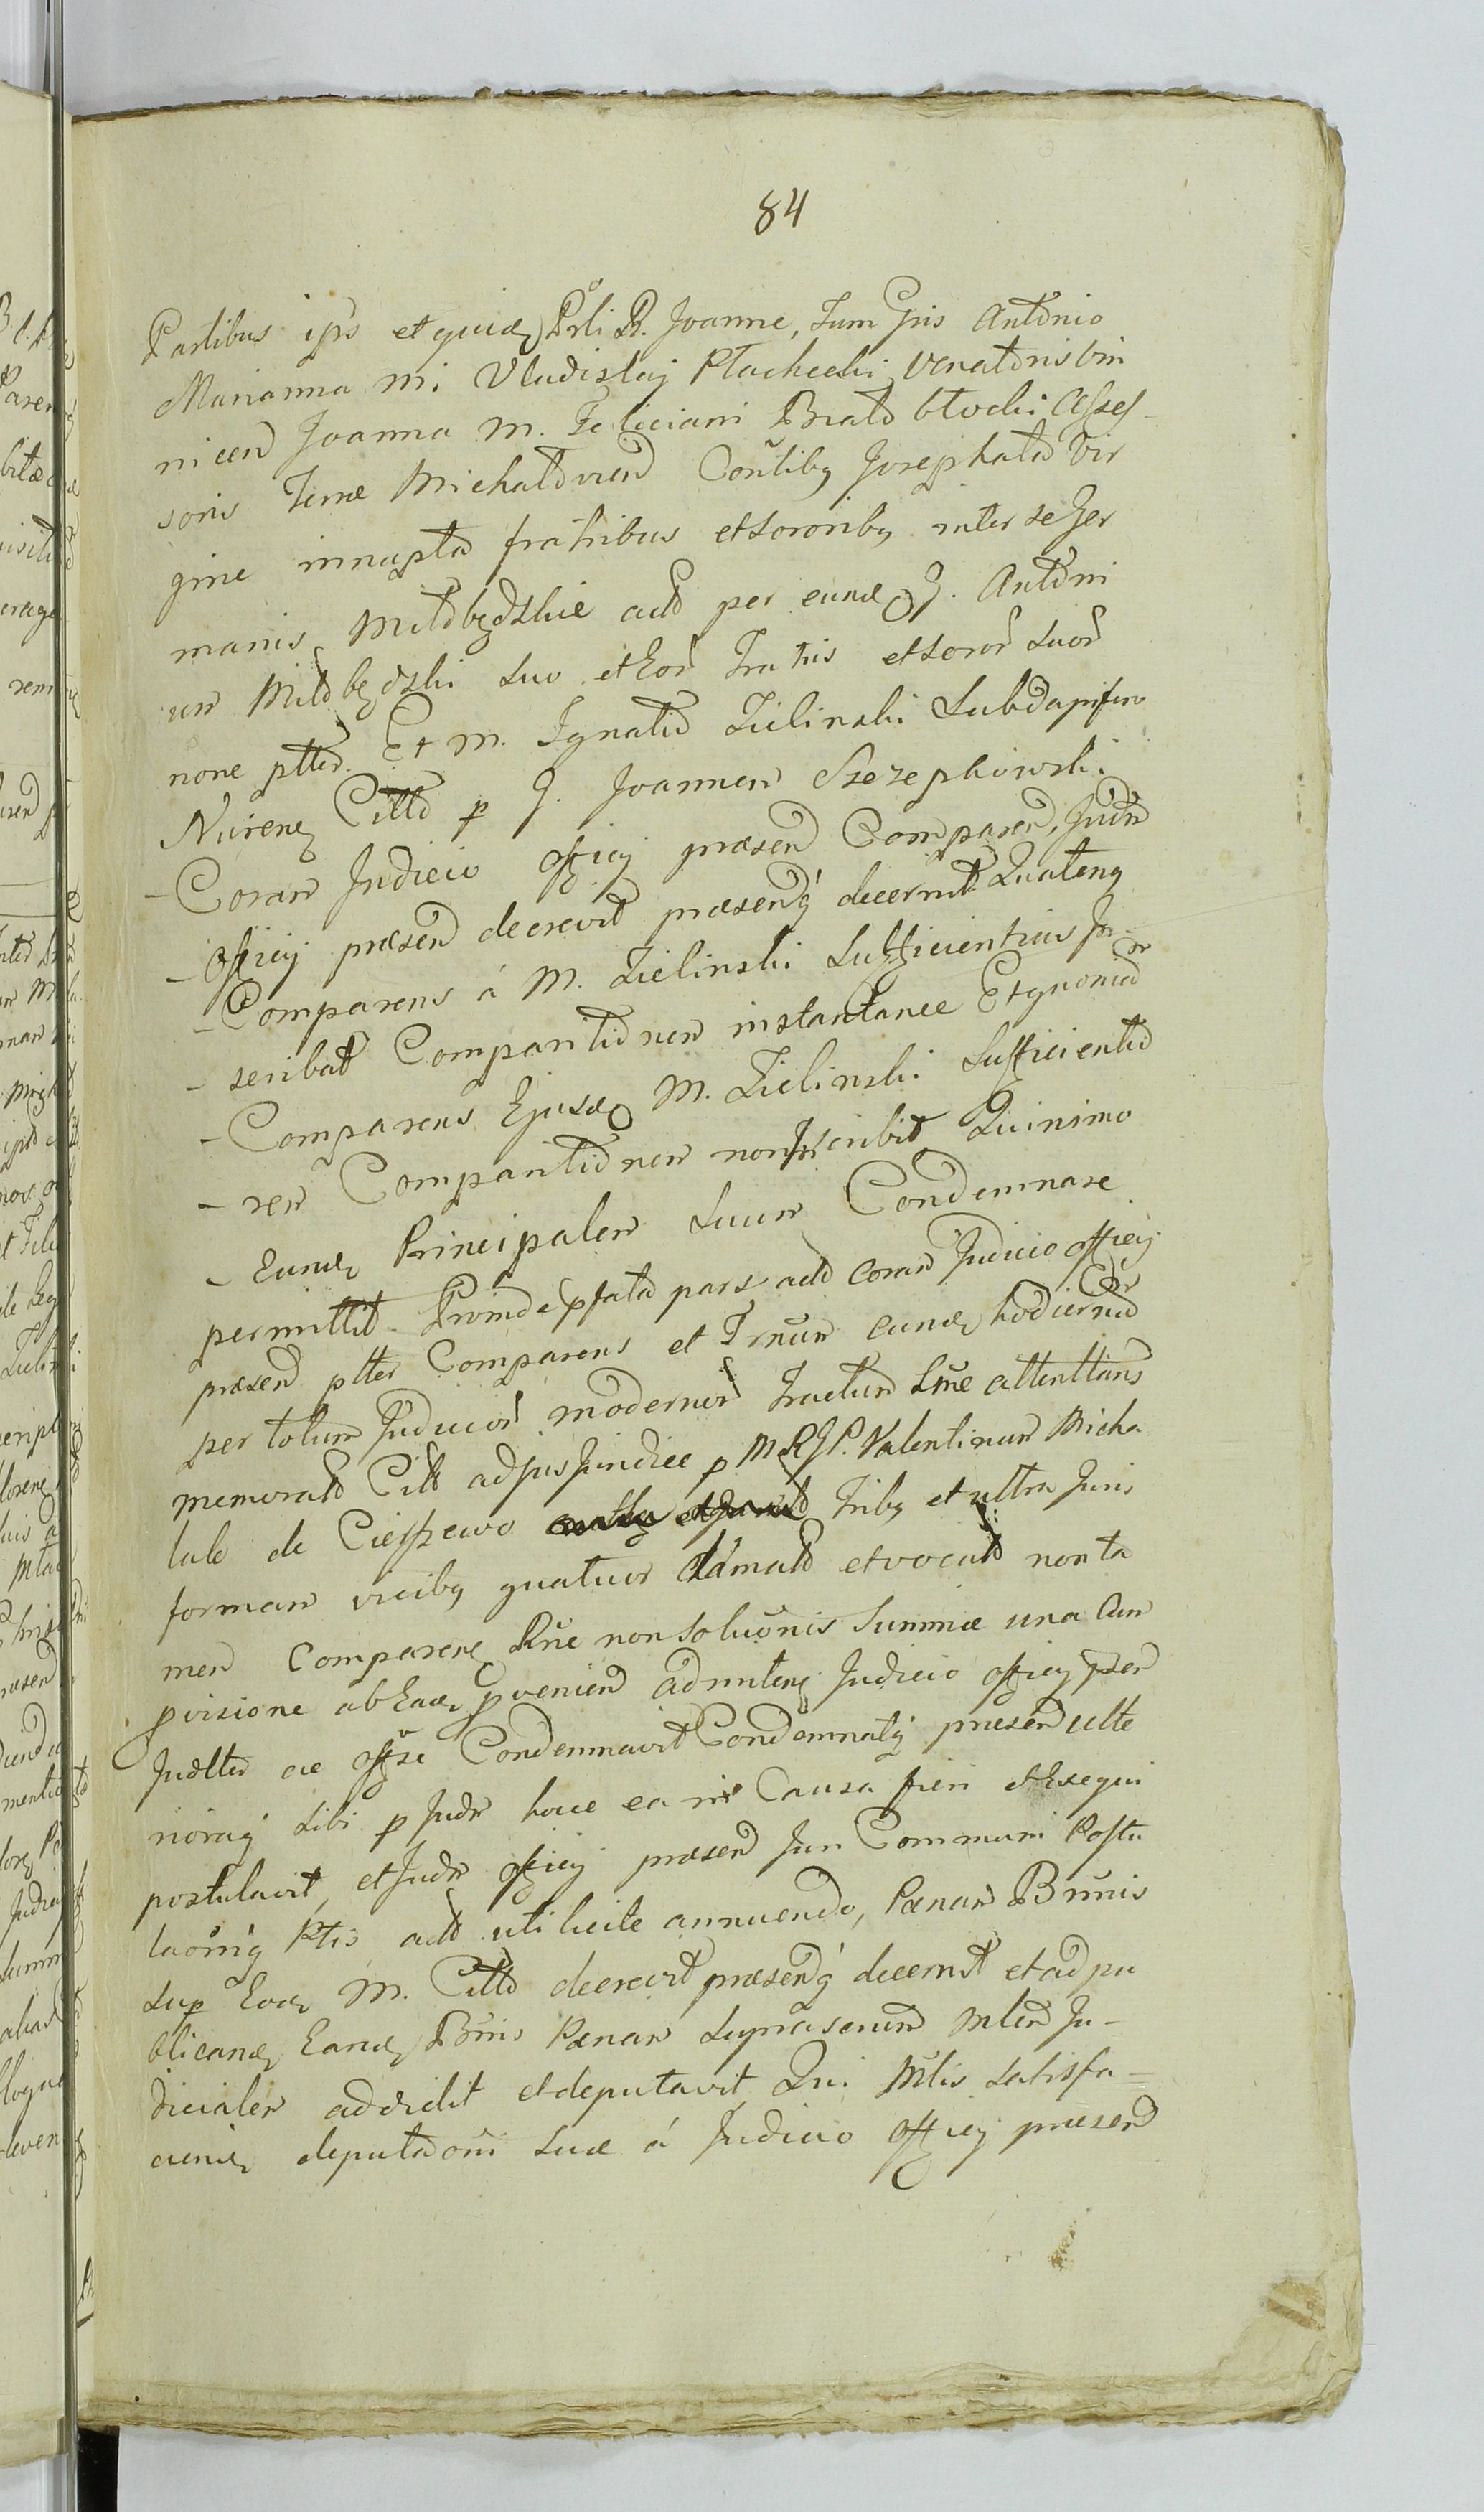 84
Partibus ips et quidem Prli R. Joanne, tum Gnis Antonio
Marianna M. Vladislaj Płachecki Venatoris Win
nicen Joanna M. Feliciani Brato błocki Asses-
soris Terrae Michałovien Contibq Josephata Vir
gine innupta fratribus et sororibq inter se Ger
manis Miłobędzkie act per eund G. Antoni
um Miłobędzki suo et Eor Fratris et soror suor
none ptter. Et M. Ignatio Zielinski Subdapifero
Nurens Citto p G. Joannem Szczepkowski
- Coram Judicio officij praesen Comparen, Judm
- officij praesen decrevit praesenq decernit Quatenq
- Comparens á M. Zielinski Sufficientius In-
- scribat Comparitionem instantanee Et quoniam
- Comparens Ejusd M. Zielinski Sufficientio
- rem Comparitionem non Inscribit Quinimo
- Eund Principalem Suum Condemnare
permittit. Proinde pfata pars act coram Judicio officij
praesen ptter Comparens et Trnum eund hodiernum
per totum Judicior modernor Tractum Sme attenttans
memorato Citt ad jus Juridice p MRGP. Valentinum Micha
lulo de Ciepszewo Tribq et ultra Juris
formam vicibq quatuor clamato et vocato non ta
men Comparens Rne non Soluonis Summae una cum
pvisione ab Ead pvenien admitens Judicio officij psen
Judtter ac offse Condemnavit Condemnatq praesen ulte
riorag sibi p Judm hocce ea in Causa fieri et Exequi
postulavit, et Judm officij praesen Juri Communi Postu
laoniq Ptis act uti licite annuendo, Paenam Bannis
sup Eod M. Citto decrevit praesenq decernit et ad pu
blicand Eand Bannis Paenam supra scrium Mlem Ju-
dicialem addidit et deputavit Qui Mtlis satisfa-
ciens deputaoni suae á Judicio officij praesen